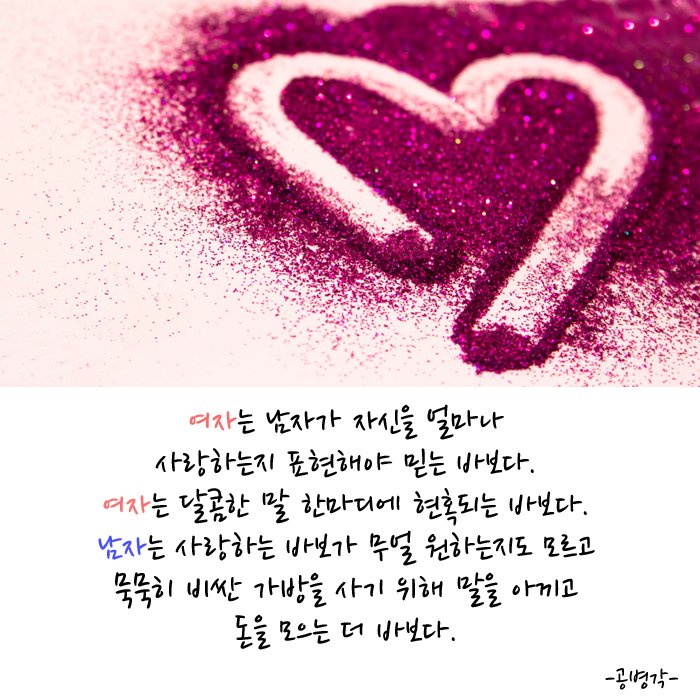 여자는 남자가 자신을 얼마나
사랑하는지 표현해야 믿는 바보다.
여자는 달콤한 말 한마디에 현혹되는 바보다.
남자는 사랑하는 바보가 무얼 원하는지도 모르고
묵묵히 비싼 가방을 사기 위해 말을 아끼고
돈을 모으는 더 바보다.
-공병각-